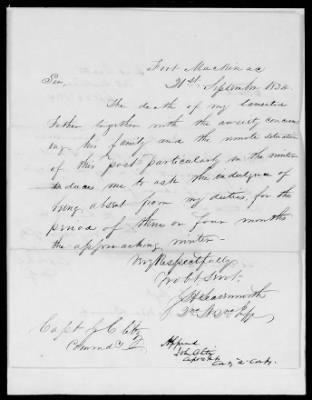 Fort Mackinac
21st September 1834
Sir,
The death of my lamented
Father together with the anxiety concern
ing his family and the remote situation
of this post particularly in the winter
induces me to ask the indulgence of
being absent from my duties, for the
period of three or four months
the approaching winter -
Very Respectfully
Yr obt Servt.
Capt J. Clitz
Commdg
Approved
John Clitz
Capt